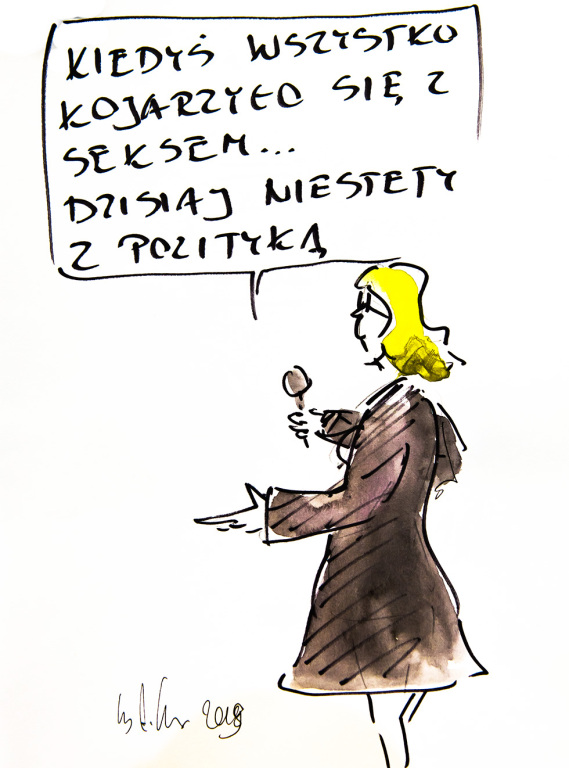 KIEDYŚ WSZYSTKO
KOJARZYŁO SIĘ Z
SEKSEM...
DZISIAJ NIESTETY
Z POLITYKĄ
2018